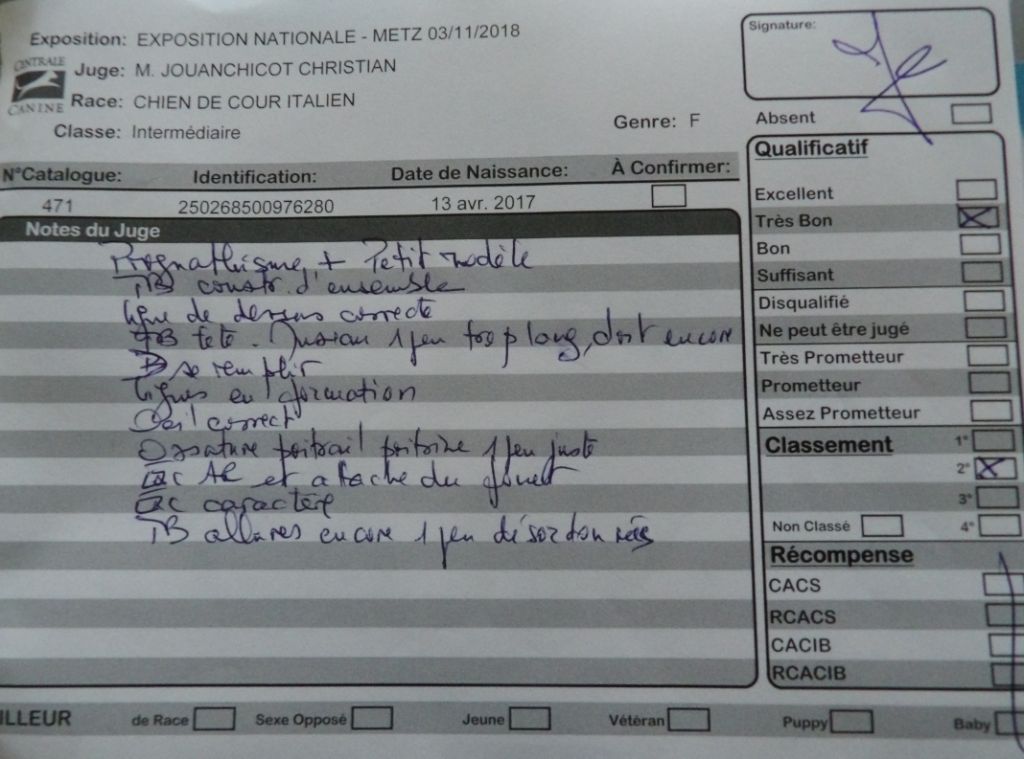 Exposition: EXPOSITION NATIONALE - METZ 03/11/2018
CENTRALE CANINE
Juge: M. JOUANCHICOT CHRISTIAN
Race: CHIEN DE COUR ITALIEN
Classe: Intermédiaire
Genre: F
N°Catalogue: Identification: Date de Naissance: À Confirmer:
471 250268500976280 13 avr. 2017
Notes du Juge
Prognathisme + Petit modèle
TB constr. d'ensemble
ligne de dessus correcte
TB tête. 1 peu trop long, doit encore
se remplir
lignes en formation
Oeil correct
Ossature poitrail poitrine 1 peu juste
AR et attache du fouet
caractère
TB allures encore 1 peu désordonnées
Signature:
Absent
Qualificatif
Excellent
Très Bon
Bon
Suffisant
Disqualifié
Ne peut être jugé
Très Prometteur
Prometteur
Assez Prometteur
Classement 1°
2°
3°
Non Classé 4°
Récompense
CACS
RCACS
CACIB
RCACIB
ILLEUR de Race Sexe Opposé Jeune Vétéran Puppy Baby